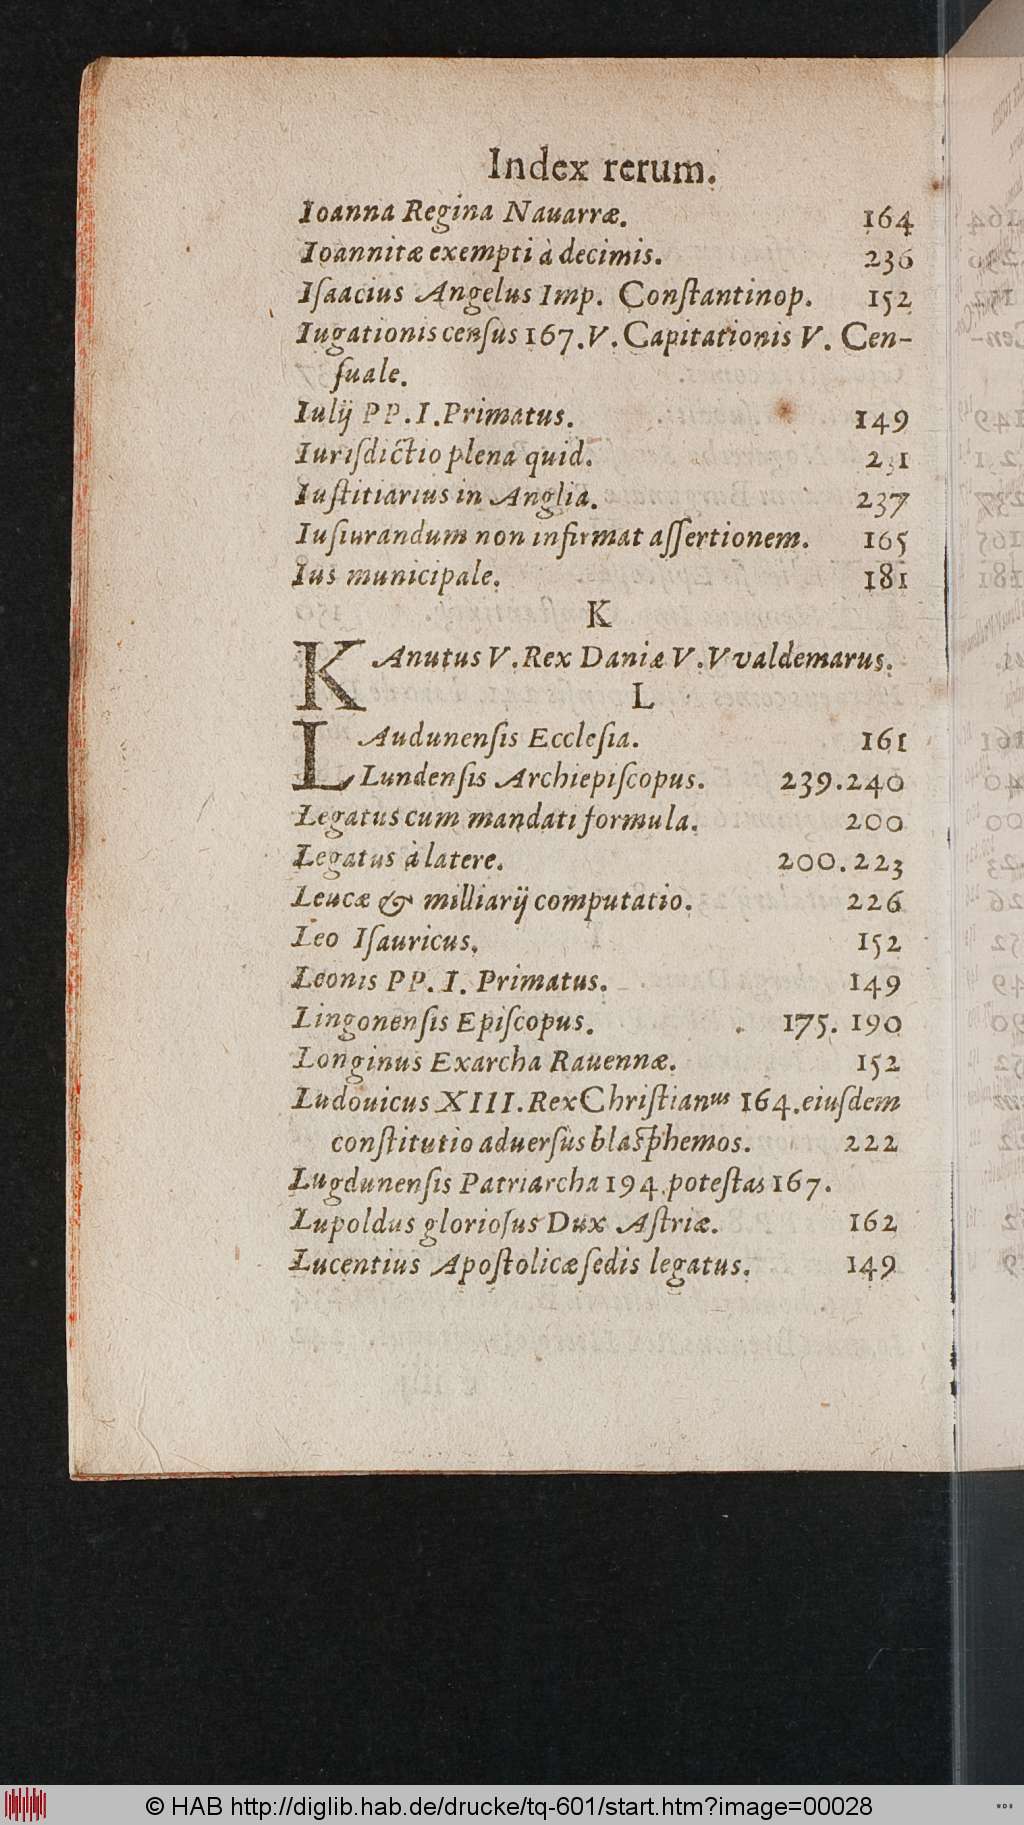 Index rerum.
Ioanna Regina Nauarræ. 164
Ioannitæ exempti à decimis. 236
Iſaacius Angelus Imp. Conſtantinop. 152
Iugationis cenſus 167. V. Capitationis V. Cen-
ſuale.
Iulij PP. I. Primatus. 149
Iuriſdictio plena quid. 231
Iuſtitiarius in Anglia. 237
Iuſiurandum non infirmat aſſertionem. 165
Ius municipale. 181
K
KAnutus V. Rex Daniæ V. Vvaldemarus.
L
LAudunenſis Eccleſia. 161
Lundenſis Archiepiſcopus. 239.240
Legatus cum mandati formula. 200
Legatus à latere. 200.223
Leucæ & milliarij computatio. 226
Leo Iſauricus. 152
Leonis PP. I. Primatus. 149
Lingonenſis Epiſcopus. 175. 190
Longinus Exarcha Rauennæ. 152
Ludouicus XIII. Rex Chriſtianus 164. eiuſdem
conſtitutio aduerſus blaſphemos. 222
Lugdunenſis Patriarcha 194. poteſtas 167.
Lupoldus glorioſus Dux Aſtriæ. 162
Lucentius Apoſtolicæ ſedis legatus. 149
© HAB http://diglib.hab.de/drucke/tq-601/start.htm?image=00028